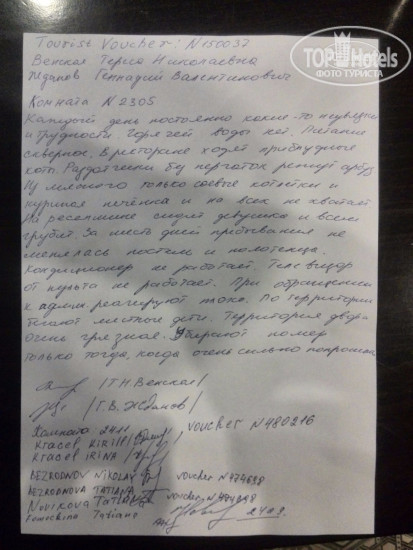 TOPHotels
ФОТО ТУРИСТА
Tourist Voucher: N150037
Венская Терия Николаевна
Жданов Геннадий Валентинович
Комната N 2305
Каждый день постоянно какие-то неувязки
и трудности. Горячей воды нет. Питание
скверное. В ресторане ходят приблудные
коты. Раздатчики без перчаток режут арбуз
Из мясного только соевые котлетки и
куриная печёнка и на всех не хватает
На ресепшине сидит девушка и всем
грубит. За шесть дней пребывания не
менялась постель и полотенца.
Кондиционер не работает. Телевизор
от пульта не работает. При обращении
к админ реагируют плохо. По территории
бегают местные дети. Территория двора
очень грязная. Убирают номер
только тогда, когда очень сильно попросишь
/Т.Н. Венская/
/Г.В. Жданов/
Комната 2411
voucher N480216
Kracel KIRILL
Kracel IRINA
BEZRODNOV NIKOLAY voucher N474698
BEZRODNOVA TATIANA
Novikova Tatiana voucher
Tatiana